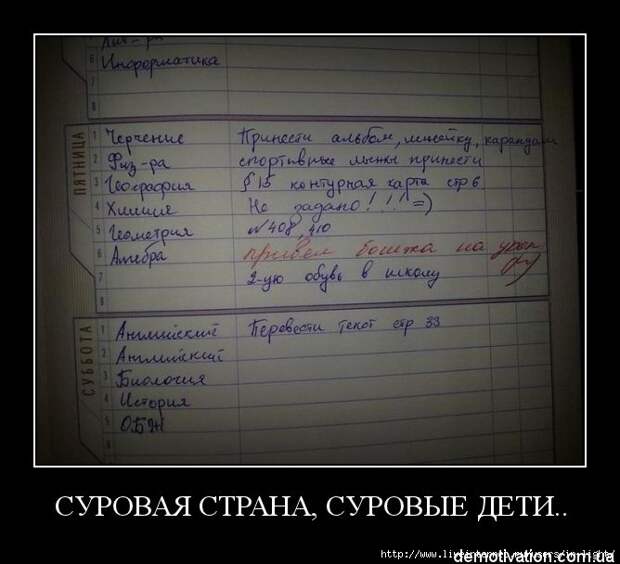 Лит-ра
6 Информатика
7
8
ПЯТНИЦА
1 Черчение Принести альбом, линейку, карандаш
2 Физ-ра спортивные лыжи принести
3 География § 15 контурная карта стр 6
4 Химия Не задано!!! =)
5 Геометрия №408, 410
6 Алгебра привел бомжа на урок
7 2-ую обувь в школу
8
СУББОТА
1 Английский Перевести текст стр 33
2 Английский
3 Биология
4 История
5 ОБЖ
СУРОВАЯ СТРАНА, СУРОВЫЕ ДЕТИ..
demotivation.com.ua